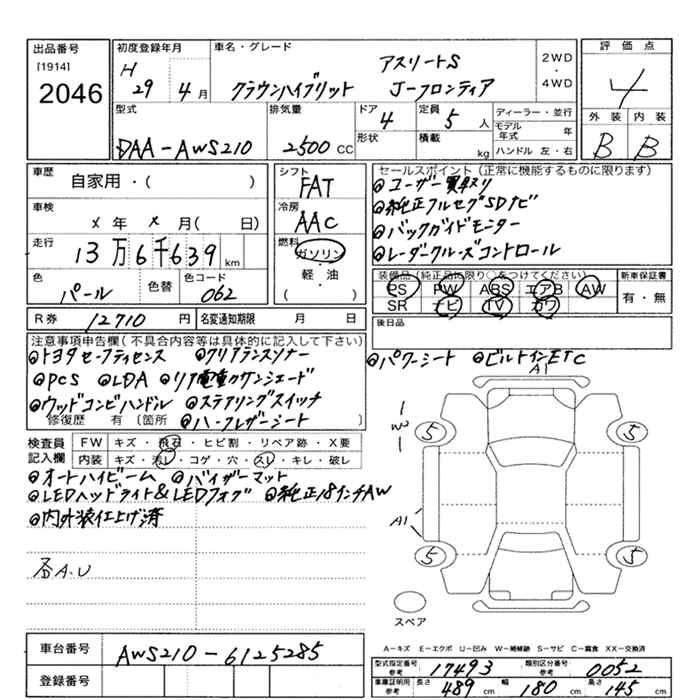 出品番号
[1914]
2046
初度登録年月
H
29 4 月
車名・グレード
アスリートS
クラウンハイブリット J-フロンティア
2WD
・
4WD
評価点
4
外装 内装
B B
型式
DAA-AWS210
排気量
2500 CC
ドア
4
形状
定員
5 人
積載
kg
ディーラー・並行
モデル年式 年
ハンドル 左・右
車歴
自家用・( )
車検
x 年 x 月( 日)
走行
13万6千639 km
色
パール
色替
色コード
062
シフト
FAT
冷房
AAC
燃料
ガソリン
・
軽・油
( )
セールスポイント(正常に機能するものに限ります)
◎ユーザー買取り
◎純正フルセグSDナビ
◎バックガイドモニター
◎レーダークルーズコントロール
装備品(純正品に限り○をつけてください)
PS PW ABS エアB AW
SR ナビ TV カワ
新車保証書
有・無
R券 12710 円
名変通知期限 月 日
後日品
◎パワーシート ◎ビルトインETC
注意事項申告欄(不具合内容等は具体的に記入して下さい)
◎トヨタセーフティセンス ◎クリアランスソナー
◎PCS ◎LDA ◎リア電動サンシェード
◎ウッドコンビハンドル ◎ステアリングスイッチ
修復歴 有 〔箇所 ◎ハーフレザーシート 〕
検査員記入欄
FW キズ・飛石・ヒビ割・リペア跡・X要
内装 キズ・汚レ・コゲ・穴・スレ・キレ・破レ
◎オートハイビーム ◎バイザーマット
◎LEDヘッドライト&LEDフォグ ◎純正18インチAW
◎内外装仕上げ済
A.U
A1
W2
5 5
A1
5 5
スペア
A-キズ E-エクボ U-凹み W-補修跡 S-サビ C-腐食 XX-交換済
車台番号
AWS210-6125285
登録番号
型式指定番号 参考
17493
類別区分番号 参考
0052
車庫証明用 参考
長さ 489 cm 幅 180 cm 高さ 145 cm